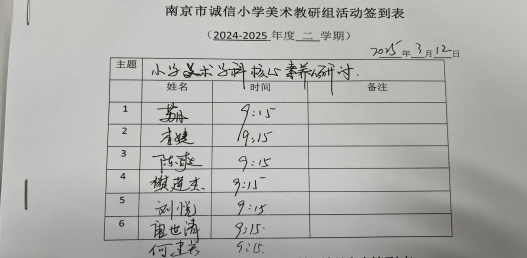 南京市诚信小学美术教研组活动签到表
（2024-2025 年度 二 学期）
2025 年 3 月 12 日
主题 小学美术学科核心素养研讨.
姓名 时间 备注
1 苏丹 9:15
2 李婕 9:15
3 9:15
4 9:15
5 刘悦 9:15
6 唐世涛 9:15.
9:15.